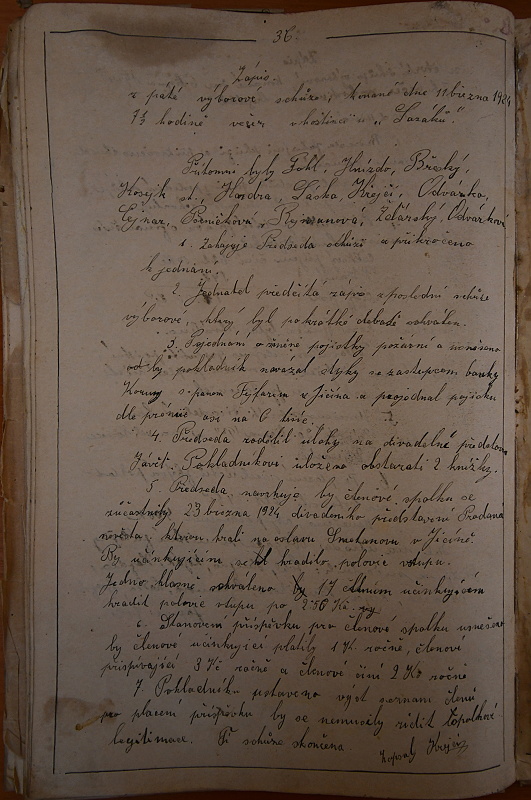 36.
Zápis.
z páté výborové schůze, konané dne 11 března 1924
7½ hodině večer v hostinci u „Lazáků“.
Přítomni byly Pohl, Hnízdo, Břeský,
Kosejk st., Hondra, Láska, Krejčí, Odvárka,
Lejnar, Rymanová, Žďárský, Odvárková
1. Zahajuje Předseda schůzi a přikročeno
k jednání.
2. Jednatel předčítá zápis z poslední schůze
výborové, který byl po krátké debatě schválen.
3. Pojednání o změně pojistky požární a usneseno
od by pokladník navázal styky se zástupcem banky
Koruny s panem v Jičína a projednal pojistku
dle prémie asi na 6 tisíc.
4. Předseda rozdělil úlohy na divadelní představení
Závěť. Pokladníkovi uloženo obstarati 2 knížky.
5. Předseda navrhuje by členové spolku se
zúčastnily 23 března 1924 divadelního představení Prodaná
nevěsta kterou hráli na oslavu Smetanovu v Jičíně.
By účinkujícím se hradilo polovic vstupu.
Jedno hlasně schváleno by 17 účinkujícím
hradit polovic vstupu po 2·50 Kč.
6. Stanovení příspěvku pro členové spolku usneseno
by členové účinkující platily 1 K. ročně, členové
přispívající 3 Kč ročně a členové činí 2 Kč ročně
7. Pokladníku ustaveno výst seznam členů
pro placení příspěvku by se nemusily řídit spolkové
legitimace. Tí schůze skončena.
zapsal Krejčí